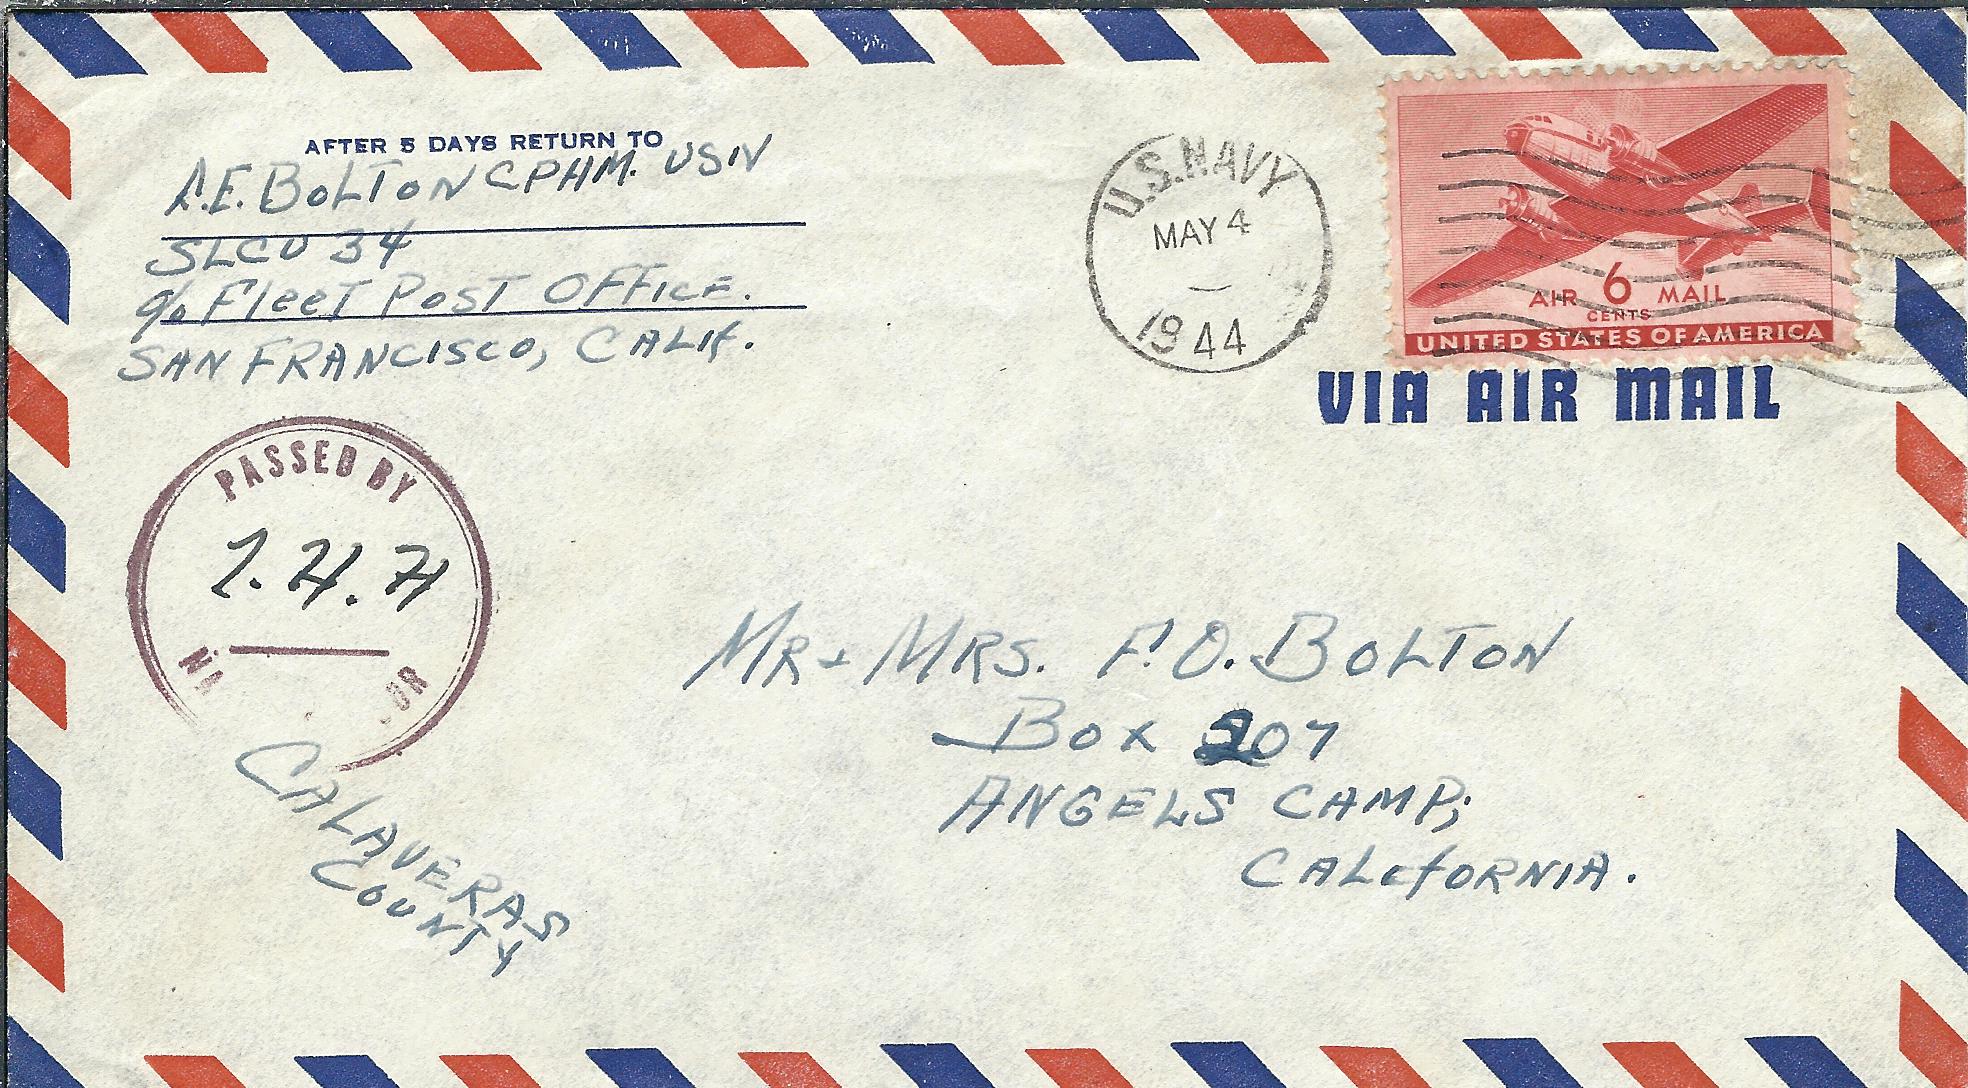 AFTER 5 DAYS RETURN TO
A.E. BOLTON CPHM. USN
SLCU 34
c/o FLEET POST OFFICE.
SAN FRANCISCO, CALIF.
U.S. NAVY
MAY 4
1944
AIR 6 MAIL
CENTS
UNITED STATES OF AMERICA
VIA AIR MAIL
PASSED BY
MR + MRS. F.O. BOLTON
BOX 207
ANGELS CAMP,
CALIFORNIA.
CALAVERAS
COUNTY